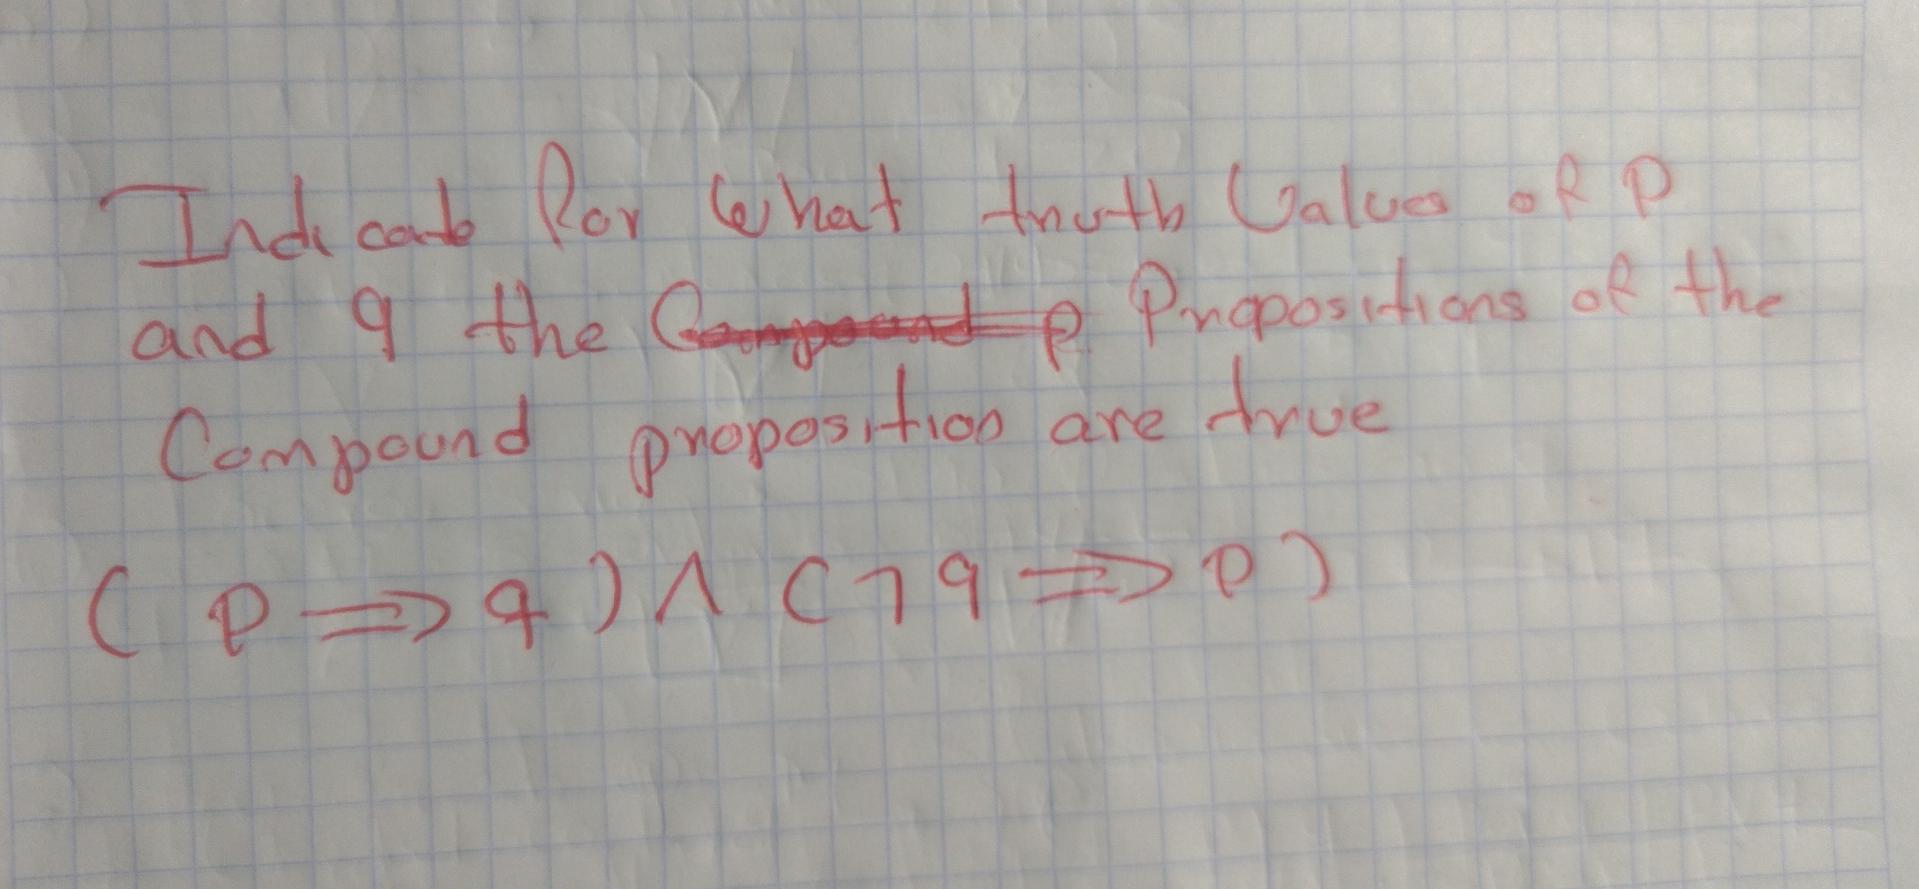 Indicate for what truth Values of P
and q the Compound p Propositions of the
Compound proposition are true
( p ⟹ q ) ∧ ( ¬ q ⟹ p )